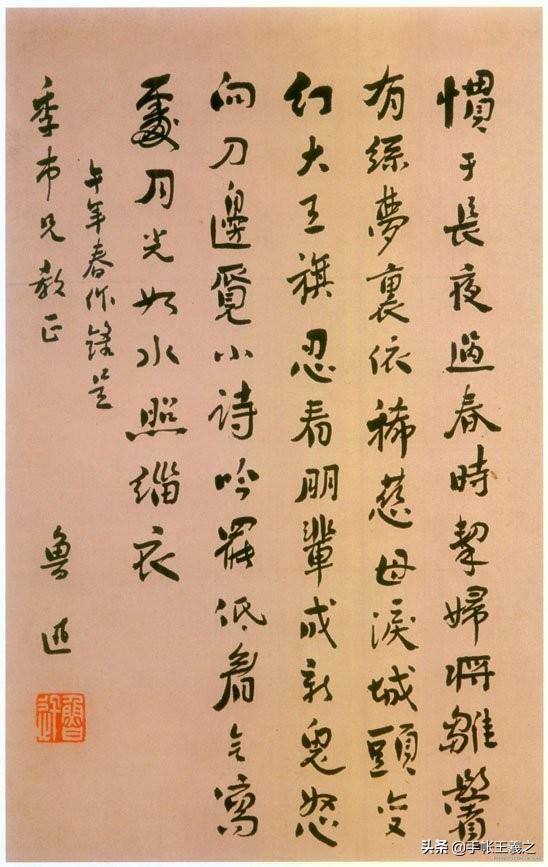 慣于長夜過春時挈婦將雛鬢
有絲夢裏依稀慈母淚城頭变
幻大王旗忍看朋輩成新鬼怒
向刀邊覓小詩吟罷低眉无寫
處月光如水照緇衣
午年春作錄呈
季巿兄教正
魯迅
魯迅
头条 @手帐王羲之